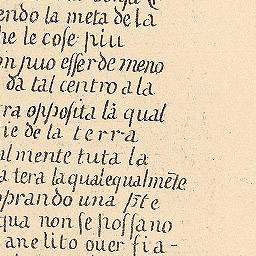 endo la meta de la
he le coſe piu
on puo eſſer de meno
da tal centro a la
ra oppoſita là qual
ie de la terra
almente tuta la
a tera la qual equalmẽte
oprando una
qua non ſe poſſano
anelito ouer fia-